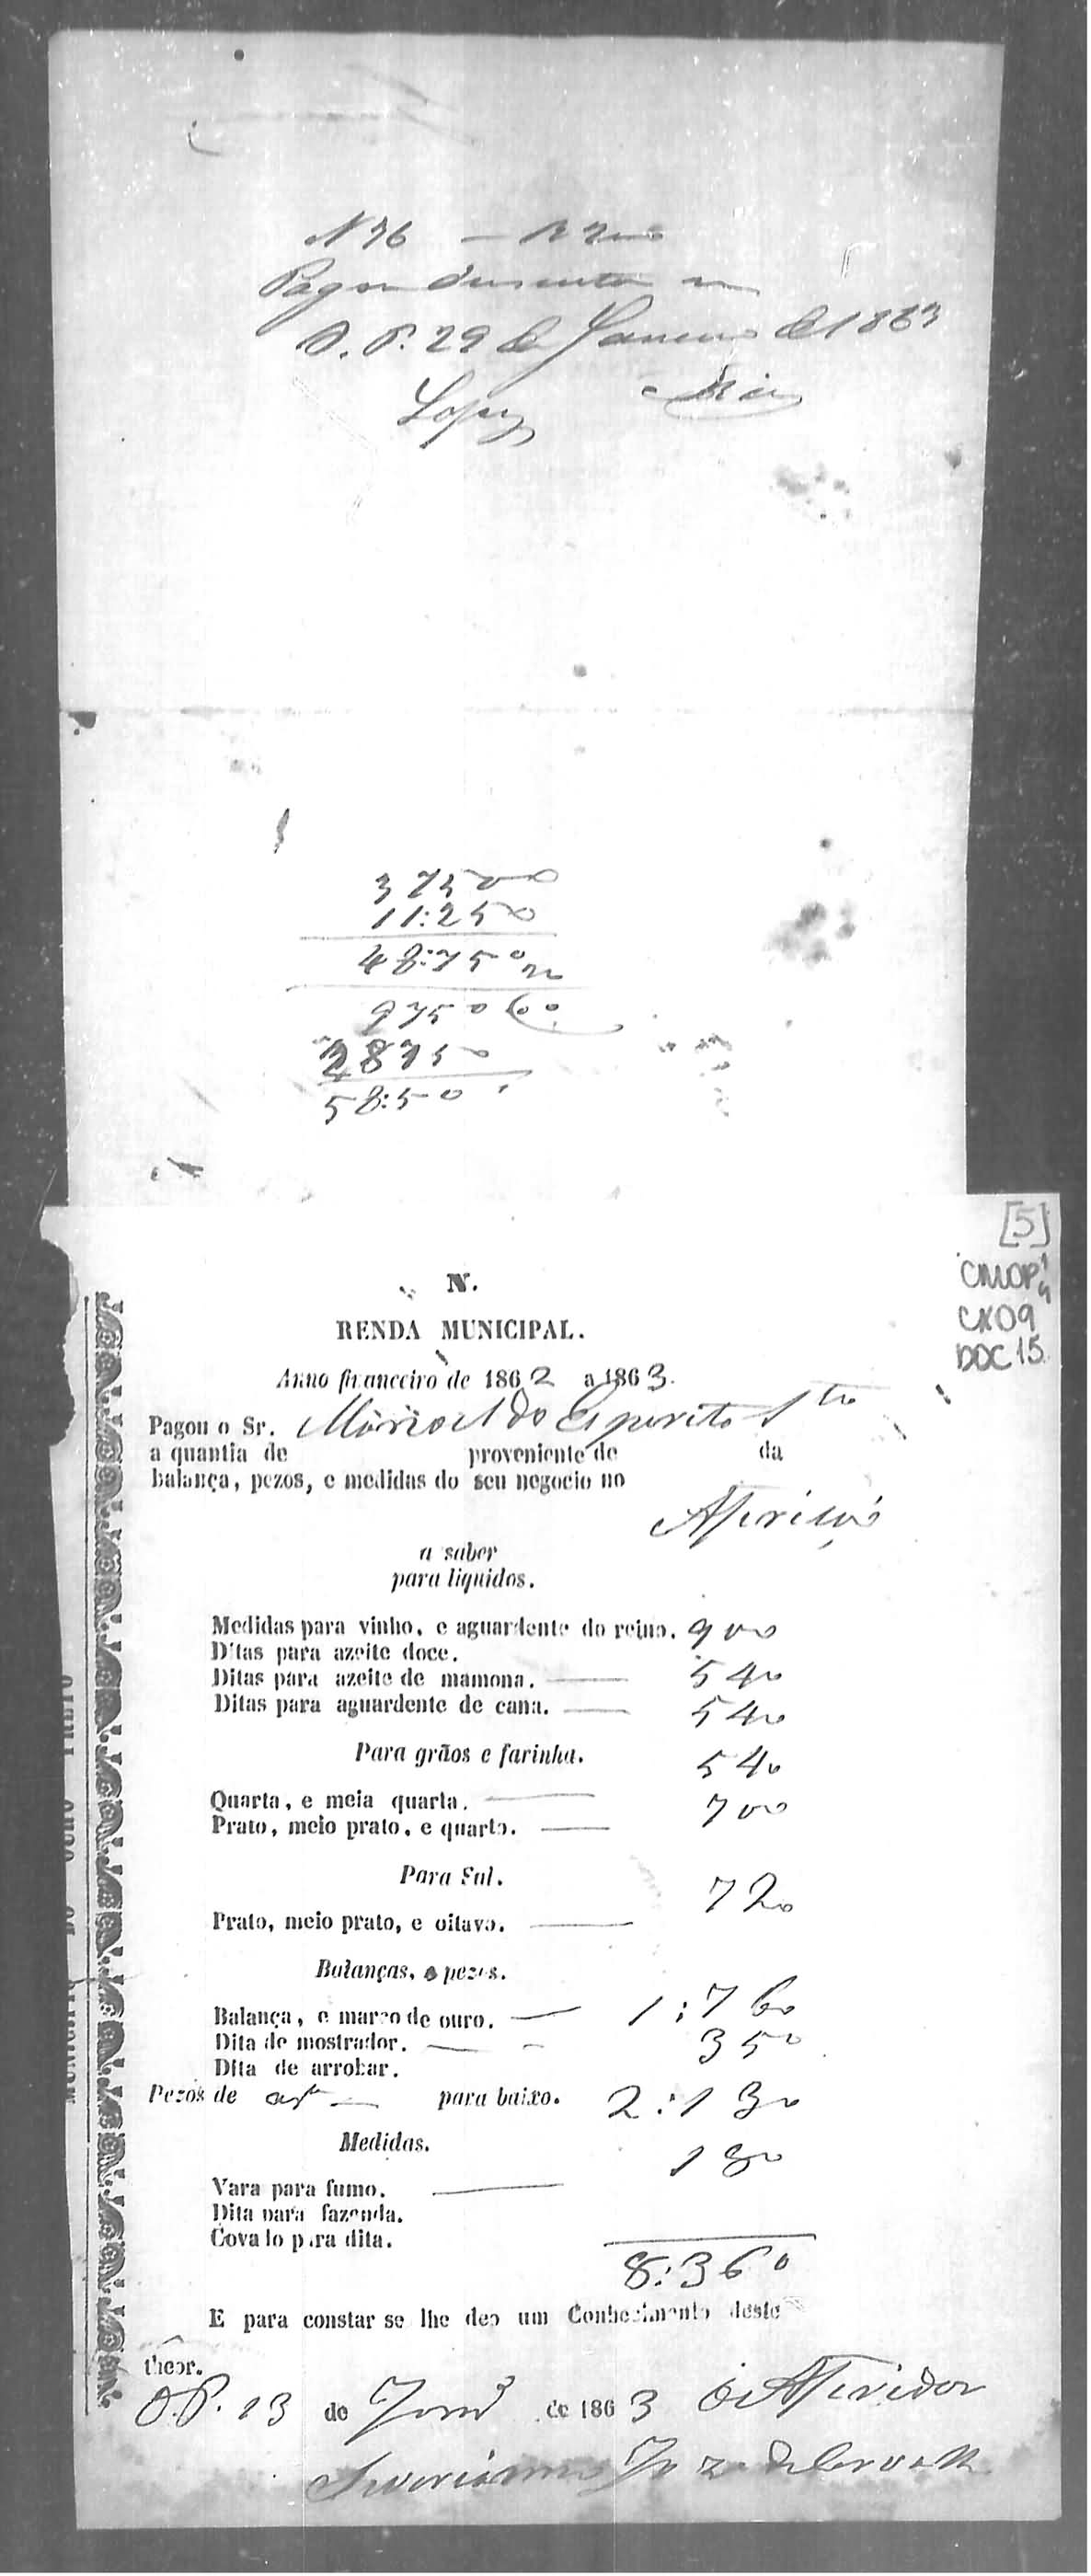 N 36 —
Pagou duzentos
O. P. 29 de Janeiro de 1863
Lopes
37500
11:250
48:750
9750
28750
58:50
[5]
CMOP
CX09
DOC 15
N.
RENDA MUNICIPAL.
Anno financeiro de 1862 a 1863.
Pagou o Sr. Manoel do Esperito Sto
a quantia de proveniente de da
balança, pezos, e medidas do seu negocio no
a saber
para liquidos.
Medidas para vinho, e aguardente do reino. 900
Ditas para azeite doce.
Ditas para azeite de mamona. — 540
Ditas para aguardente de cana. — 540
Para grãos e farinha.
540
Quarta, e meia quarta. —
700
Prato, meio prato, e quarto. —
Para Sal.
720
Prato, meio prato, e oitavo. —
Balanças, e pezos.
Balança, e marco de ouro. — 1:760
Dita de mostrador. — - 350
Dita de arrobar.
Pezos de — para baixo. 2:130
Medidas.
180
Vara para fumo. —
Dita para fazenda.
Covado para dita.
8:360
E para constar se lhe deo um Conhecimento deste
theor.
O.P. 13 de Janro de 1863 O Aferidor
MUNICIPIO DO OURO PRETO